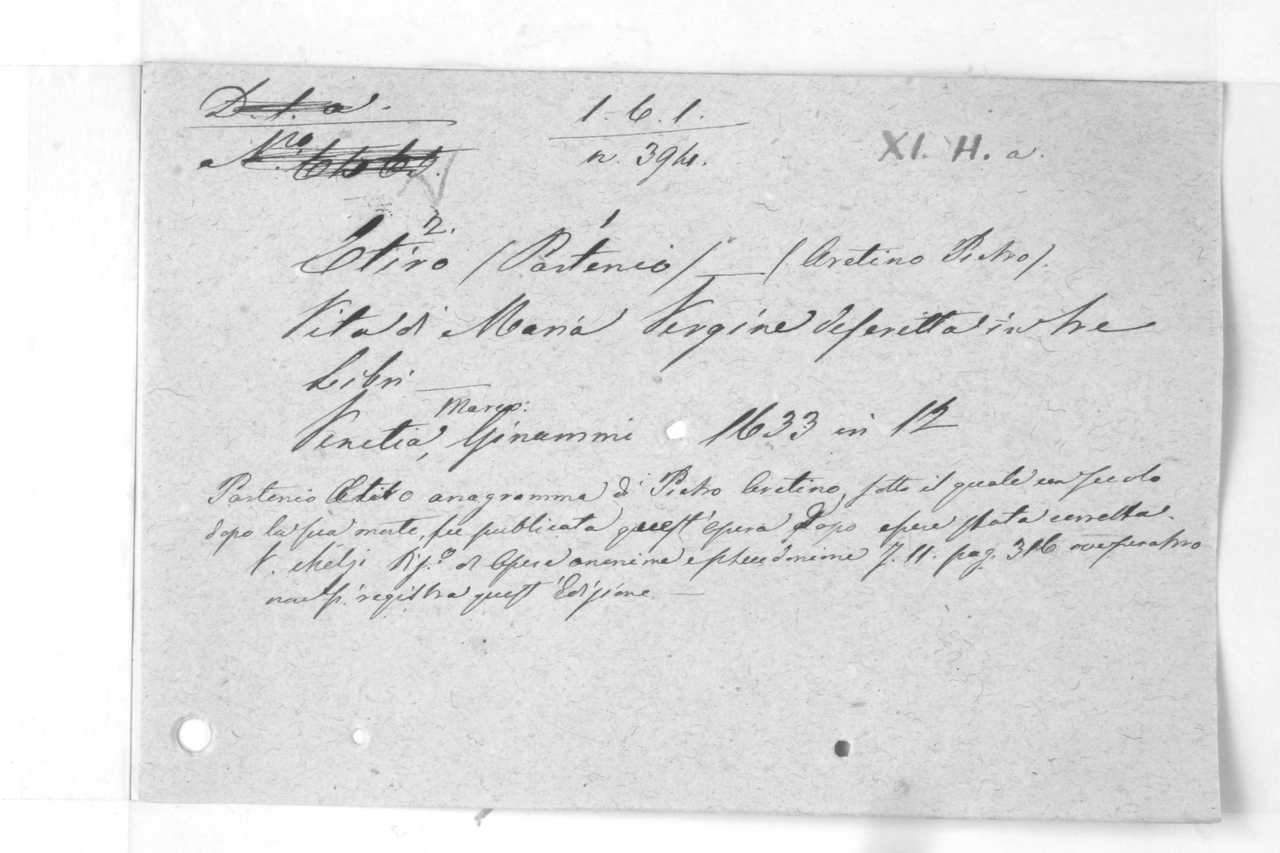 D. 1. a.
1. 6. 1.
n. 394.
XI. H. a.
2. 1
Etiro (Partenio) — (Aretino Pietro).
Vita di Maria Vergine descritta in tre
Libri —
Marco:
Venetia, Ginammi 1633 in 12
Partenio Etiro anagramma di Pietro Aretino, sotto il quale un secolo
dopo la sua morte, fu publicata quest' opera dopo essere stata corretta.
V. Melzi Diz.o di Opere anonime e pseudonime T. II. pag. 316 ove peraltro
non si registra quest' Edizione —